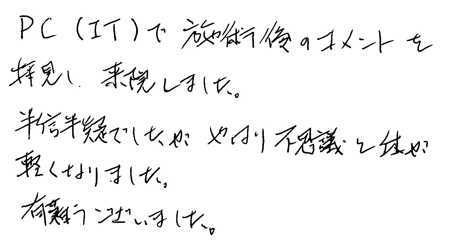 PC(IT)で施術後のコメントを
拝見し、来院しました。
半信半疑でしたが やはり不思議と体が
軽くなりました。
有難うございました。